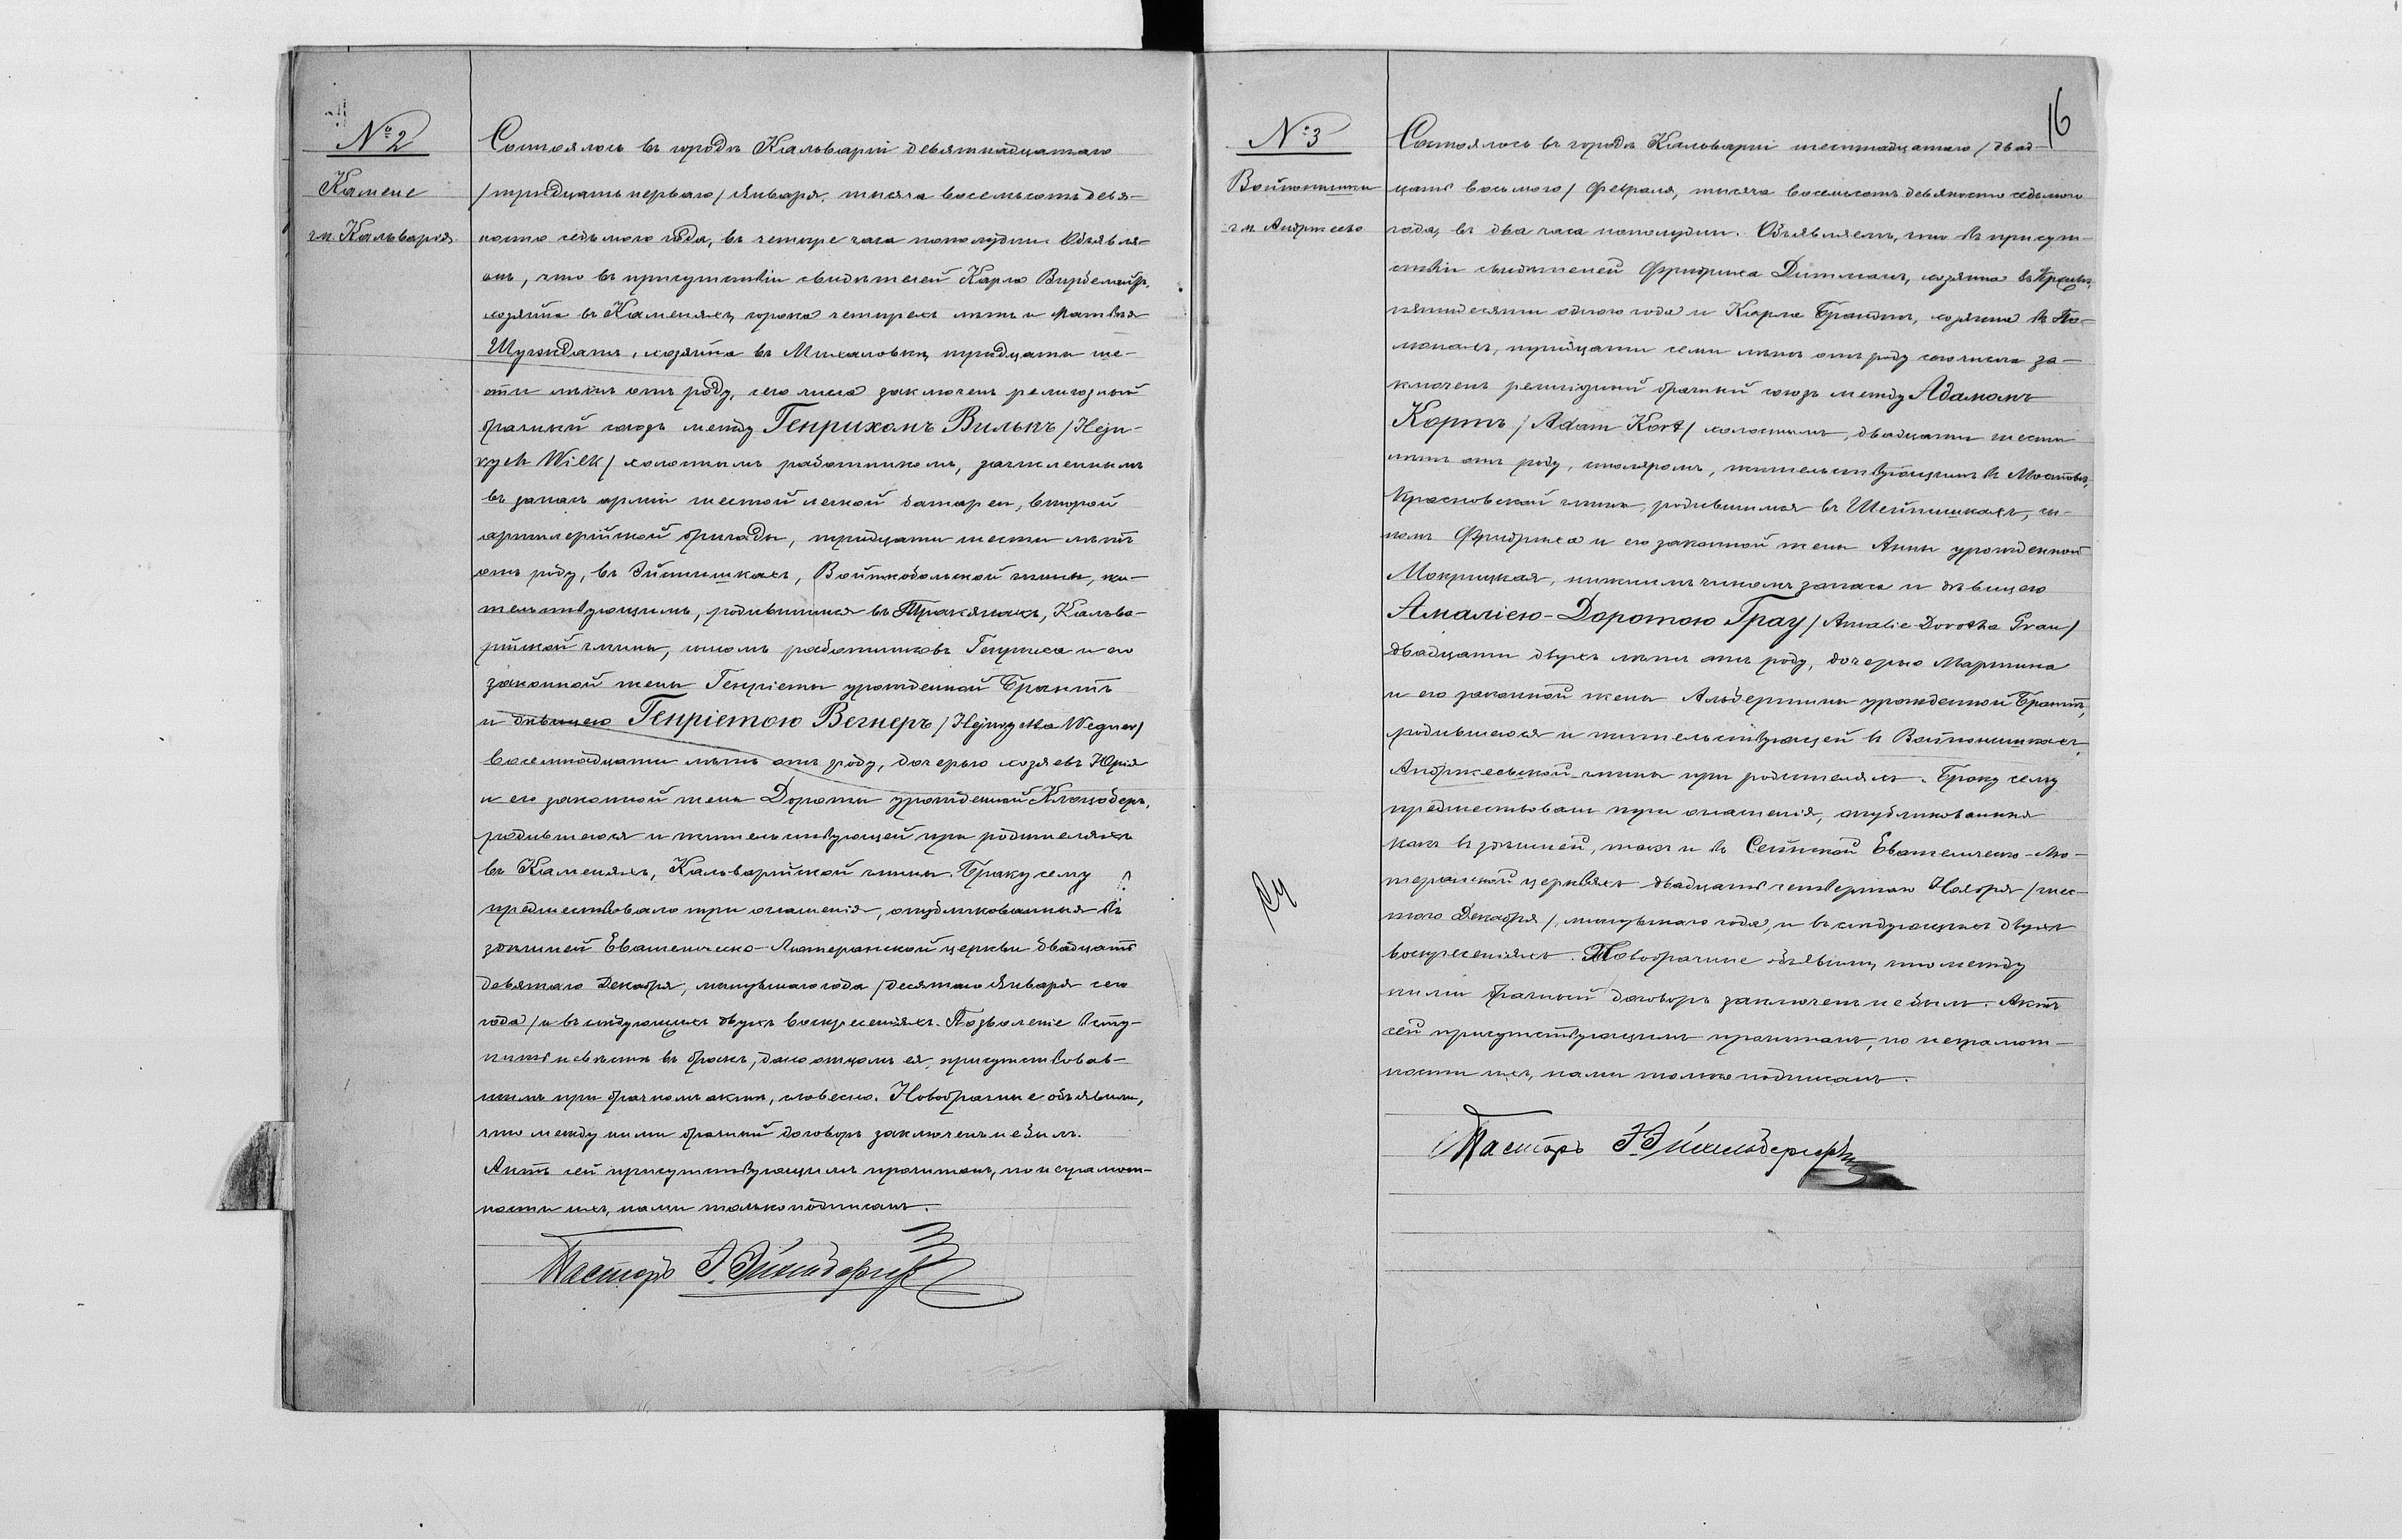 № 2
Камене
гм. Кальварія
Состоялось въ городѣ Кальваріи девятнадцатаго
/тридцать перваго/ Января, тысяча восемьсотъ девя-
носто седьмого года, въ четыре часа пополудни. Объявля-
емъ, что въ присутствіи свидѣтелей Карла
хозяина въ Каменяхъ, сорока четырехъ лѣтъ и Матвѣя
хозяина въ Михаловкѣ, тридцати ше-
сти лѣтъ отъ роду, сего числа заключенъ религіозный
брачный союзъ между Генрихомъ Вилькъ /Hejn-
rych Wilk/ холостымъ работникомъ, зачисленнымъ
въ запасъ арміи шестой легкой батареи, второй
артилерійской бригады, тридцати шести лѣтъ
отъ роду, въ Войткобольской гмины, жи-
тельствующимъ, родившимся въ Тракянахъ, Кальва-
рійской гмины, сыномъ работниковъ Генриха и его
законной жены Генріеты урожденной Брантъ
и дѣвицею Генріетою Вегнеръ /Hejnryetta Wegner/
восемнадцати лѣтъ отъ роду, дочерью хозяевъ Юрія
и его законной жены Дороты урожденной
родившеюся и жительствующей при родителяхъ
въ Каменяхъ, Кальварійской гмины. Браку сему
предшествовало три оглашенія, опубликованныя въ
здѣшней Евангелическо-Лютеранской церкви двадцать
девятаго Декабря, минувшаго года /десятаго Января сего
года/ и въ слѣдующихъ двухъ воскресеніяхъ. Позволеніе всту-
пить невѣстѣ въ бракъ, дано отцомъ ея, присутствовав-
шимъ при брачномъ актѣ, словесно. Новобрачные объявили,
что между ними брачный договоръ заключенъ не былъ.
Актъ сей присутствующимъ прочитанъ, по неграмот-
ности ихъ, нами только подписанъ.
Пасторъ
16
№ 3
Войпонишки
гм. Андржеево
Состоялось въ городѣ Кальваріи шестнадцатаго /двад-
цать восьмого/ Февраля, тысяча восемьсотъ девяносто седьмого
года, въ два часа пополудни. Объявляемъ, что въ присут-
ствіи свидѣтелей Фридриха Дитманъ, хозяина въ
пятидесяти одного года и Карла Брандтъ, хозяина въ По-
лонахъ, тридцати семи лѣтъ отъ роду сего числа за-
ключенъ религіозный брачный союзъ между Адамомъ
Кортъ /Adam Kort/ холостымъ, двадцати шести
лѣтъ отъ роду, столяромъ, жительствующимъ въ
Красновской гмины, родившимся въ Шейпишкахъ, сы-
номъ Фридриха и его законной жены Анны урожденной
Мокрицкая, нижнимъ чиномъ запаса и дѣвицею
Амаліею-Доротою Грау /Amalie-Dorotha Grau/
двадцати двухъ лѣтъ отъ роду, дочерью Мартина
и его законной жены Альбертины урожденной Брантъ,
родившеюся и жительствующей въ Войпонишкахъ,
Андржеевской гмины при родителяхъ. Браку сему
предшествовали три оглашенія, опубликованныя
какъ въ здѣшней, такъ и въ Сейнской Евангелическо-Лю-
теранской церквяхъ двадцать четвертаго Ноября /шес-
таго Декабря/, минувшаго года, и въ слѣдующихъ двухъ
воскресеніяхъ. Новобрачные объявили, что между
ними брачный договоръ заключенъ не былъ. Актъ
сей присутствующимъ прочитанъ, по неграмот-
ности ихъ, нами только подписанъ.
Пасторъ